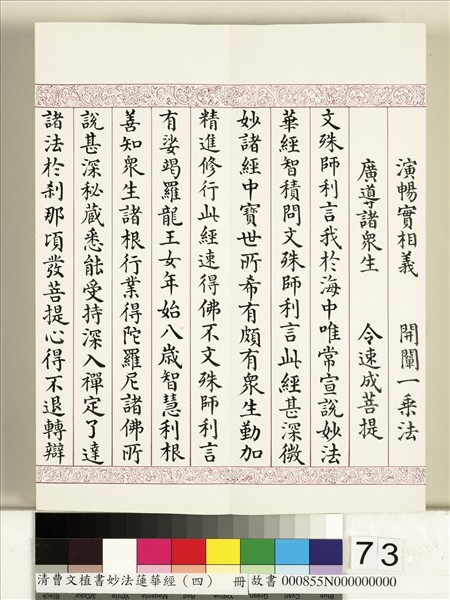 演暢實相義　開闡一乘法
廣導諸衆生　令速成菩提
文殊師利言我於海中唯常宣說妙法
華經智積問文殊師利言此經甚深微
妙諸經中寶世所希有頗有衆生勤加
精進修行此經速得佛不文殊師利言
有娑竭羅龍王女年始八歲智慧利根
善知衆生諸根行業得陀羅尼諸佛所
說甚深秘藏悉能受持深入禪定了達
諸法於刹那頃發菩提心得不退轉辯
73
清曹文植書妙法蓮華經（四）　冊 故書 000855N000000000